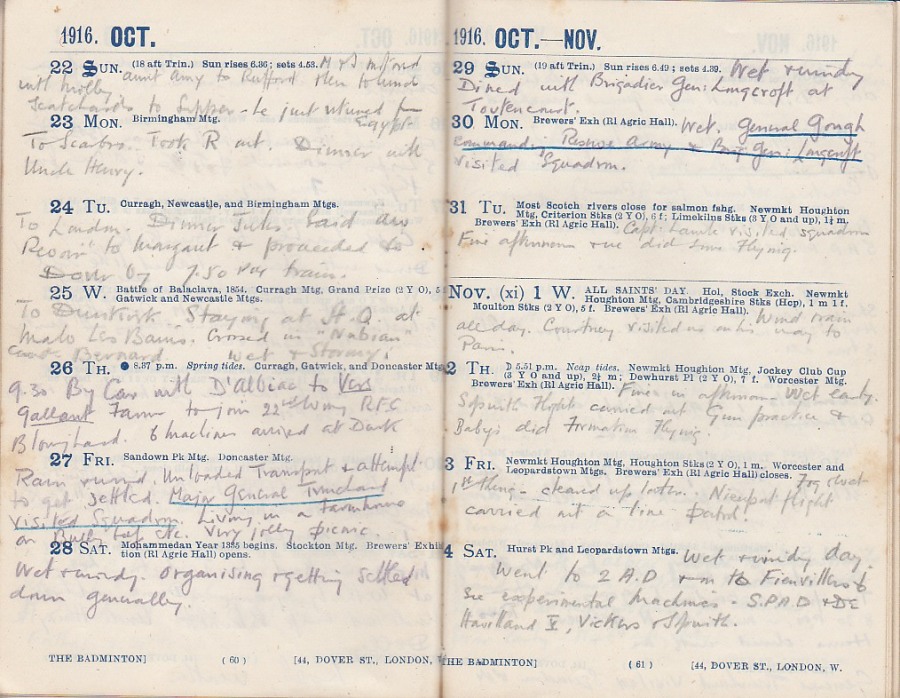 1916. OCT.
22 SUN. (18 aft Trin.) Sun rises 6.36; sets 4.53. M & I
with Molly aunt Amy to Rufford then to lunch
to Supper - he just returned fr
Egypt
23 MON. Birmingham Mtg.
To Scarbro. Took R out. Dinner with
Uncle Henry.
24 TU. Curragh, Newcastle, and Birmingham Mtgs.
To London. Dinner Jules Said au
Revoir to Margaret & proceeded to
Dover by 7.50 train.
25 W. Battle of Balaclava, 1854. Curragh Mtg, Grand Prize (2 Y O), 5
Gatwick and Newcastle Mtgs.
To Dunkirk Staying at H.Q at
Malo Les Bains. Crossed in "Nubian"
Bernard Wet & Stormy.
26 TH. ● 8.37 p.m. Spring tides. Curragh, Gatwick, and Doncaster Mtgs
9.30 By Car with D'Albiac to Vert
Gallant Farm to join 22nd Wing RFC
6 machines arrived at Dusk
27 FRI. Sandown Pk Mtg. Doncaster Mtg.
Rain & wind. Unloaded Transport & attempted
to get settled. Major General Trenchard
visited Squadron. Living in a farmhouse
on Bully beef etc. Very jolly picnic.
28 SAT. Mohammedan Year 1335 begins. Stockton Mtg. Brewers' Exhibi
tion (Rl Agric Hall) opens.
Wet & windy. Organising & getting settled
down generally.
THE BADMINTON] (60) [44, DOVER ST., LONDON, W
1916. OCT.—NOV.
29 SUN. (19 aft Trin.) Sun rises 6.49; sets 4.39. Wet & windy
Dined with Brigadier Gen: Longcroft at
Toutencourt.
30 MON. Brewers' Exh (Rl Agric Hall). Wet. General Gough
commanding Reserve Army & Brig Gen: Longcroft
visited Squadron.
31 TU. Most Scotch rivers close for salmon fshg. Newmkt Houghton
Mtg, Criterion Stks (2 Y O), 6 f; Limekilns Stks (3 Y O and up), 1¼ m.
Brewers' Exh (Rl Agric Hall). Capt: Lambe visited squadron
Fine afternoon & we did some Flying.
Nov. (xi) 1 W. ALL SAINTS' DAY. Hol, Stock Exch. Newmkt
Houghton Mtg, Cambridgeshire Stks (Hcp), 1 m 1 f.
Moulton Stks (2 Y O), 5 f. Brewers' Exh (Rl Agric Hall). Wind & rain
all day. Courtney visited us on his way to
Paris.
2 TH. ☽ 5.51 p.m. Neap tides. Newmkt Houghton Mtg, Jockey Club Cup
(3 Y O and up), 2¼ m; Dewhurst Pl (2 Y O), 7 f. Worcester Mtg.
Brewers' Exh (Rl Agric Hall). Finer in afternoon - Wet early.
Sopwith Flight carried out Gun practice &
Baby's did Formation Flying.
3 FRI. Newmkt Houghton Mtg, Houghton Stks (2 Y O), 1 m. Worcester and
Leopardstown Mtgs. Brewers' Exh (Rl Agric Hall) closes. Fog & wet
1st thing - cleared up later. Nieuport flight
carried out a line Patrol.
4 SAT. Hurst Pk and Leopardstown Mtgs. Wet & windy day.
Went to 2 A.D & on to Fienvillers to
see experimental machines - S.P.A.D & DE
Havilland V, Vickers & Sopwith.
THE BADMINTON] (61) [44, DOVER ST., LONDON, W.